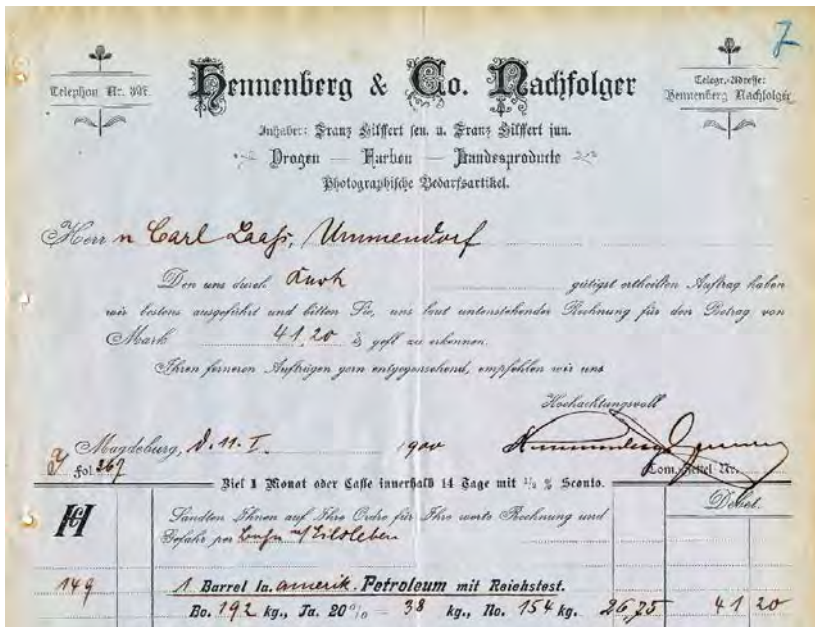 7
Telephon Nr. 397.
Hennenberg & Co. Nachfolger
Telegr.-Adresse:
Hennenberg Nachfolger
Inhaber: Franz Hilffert sen. u. Franz Hilffert jun.
Drogen — Farben — Landesproducte
Photographische Bedarfsartikel.
Herrn Carl Laass, Ummendorf
Den uns durch gütigst ertheilten Auftrag haben
wir bestens ausgeführt und bitten Sie, uns laut untenstehender Rechnung für den Betrag von
Mark 41,20 ₰ gefl. zu erkennen.
Ihren ferneren Aufträgen gern entgegensehend, empfehlen wir uns
Hochachtungsvoll
Magdeburg, d. 11. I. 1900
Fol. 267
Com.-Zettel Nr.
Ziel 1 Monat oder Casse innerhalb 14 Tage mit ½ % Sconto.
Debet.
H
Sandten Ihnen auf Ihre Ordre für Ihre werte Rechnung und
Gefahr per Bahn n/ Eilsleben
149
1 Barrel Ia. amerik. Petroleum mit Reichstest.
Bo. 192 kg., Ta. 20% – 38 kg., No. 154 kg. 26,75 41 20